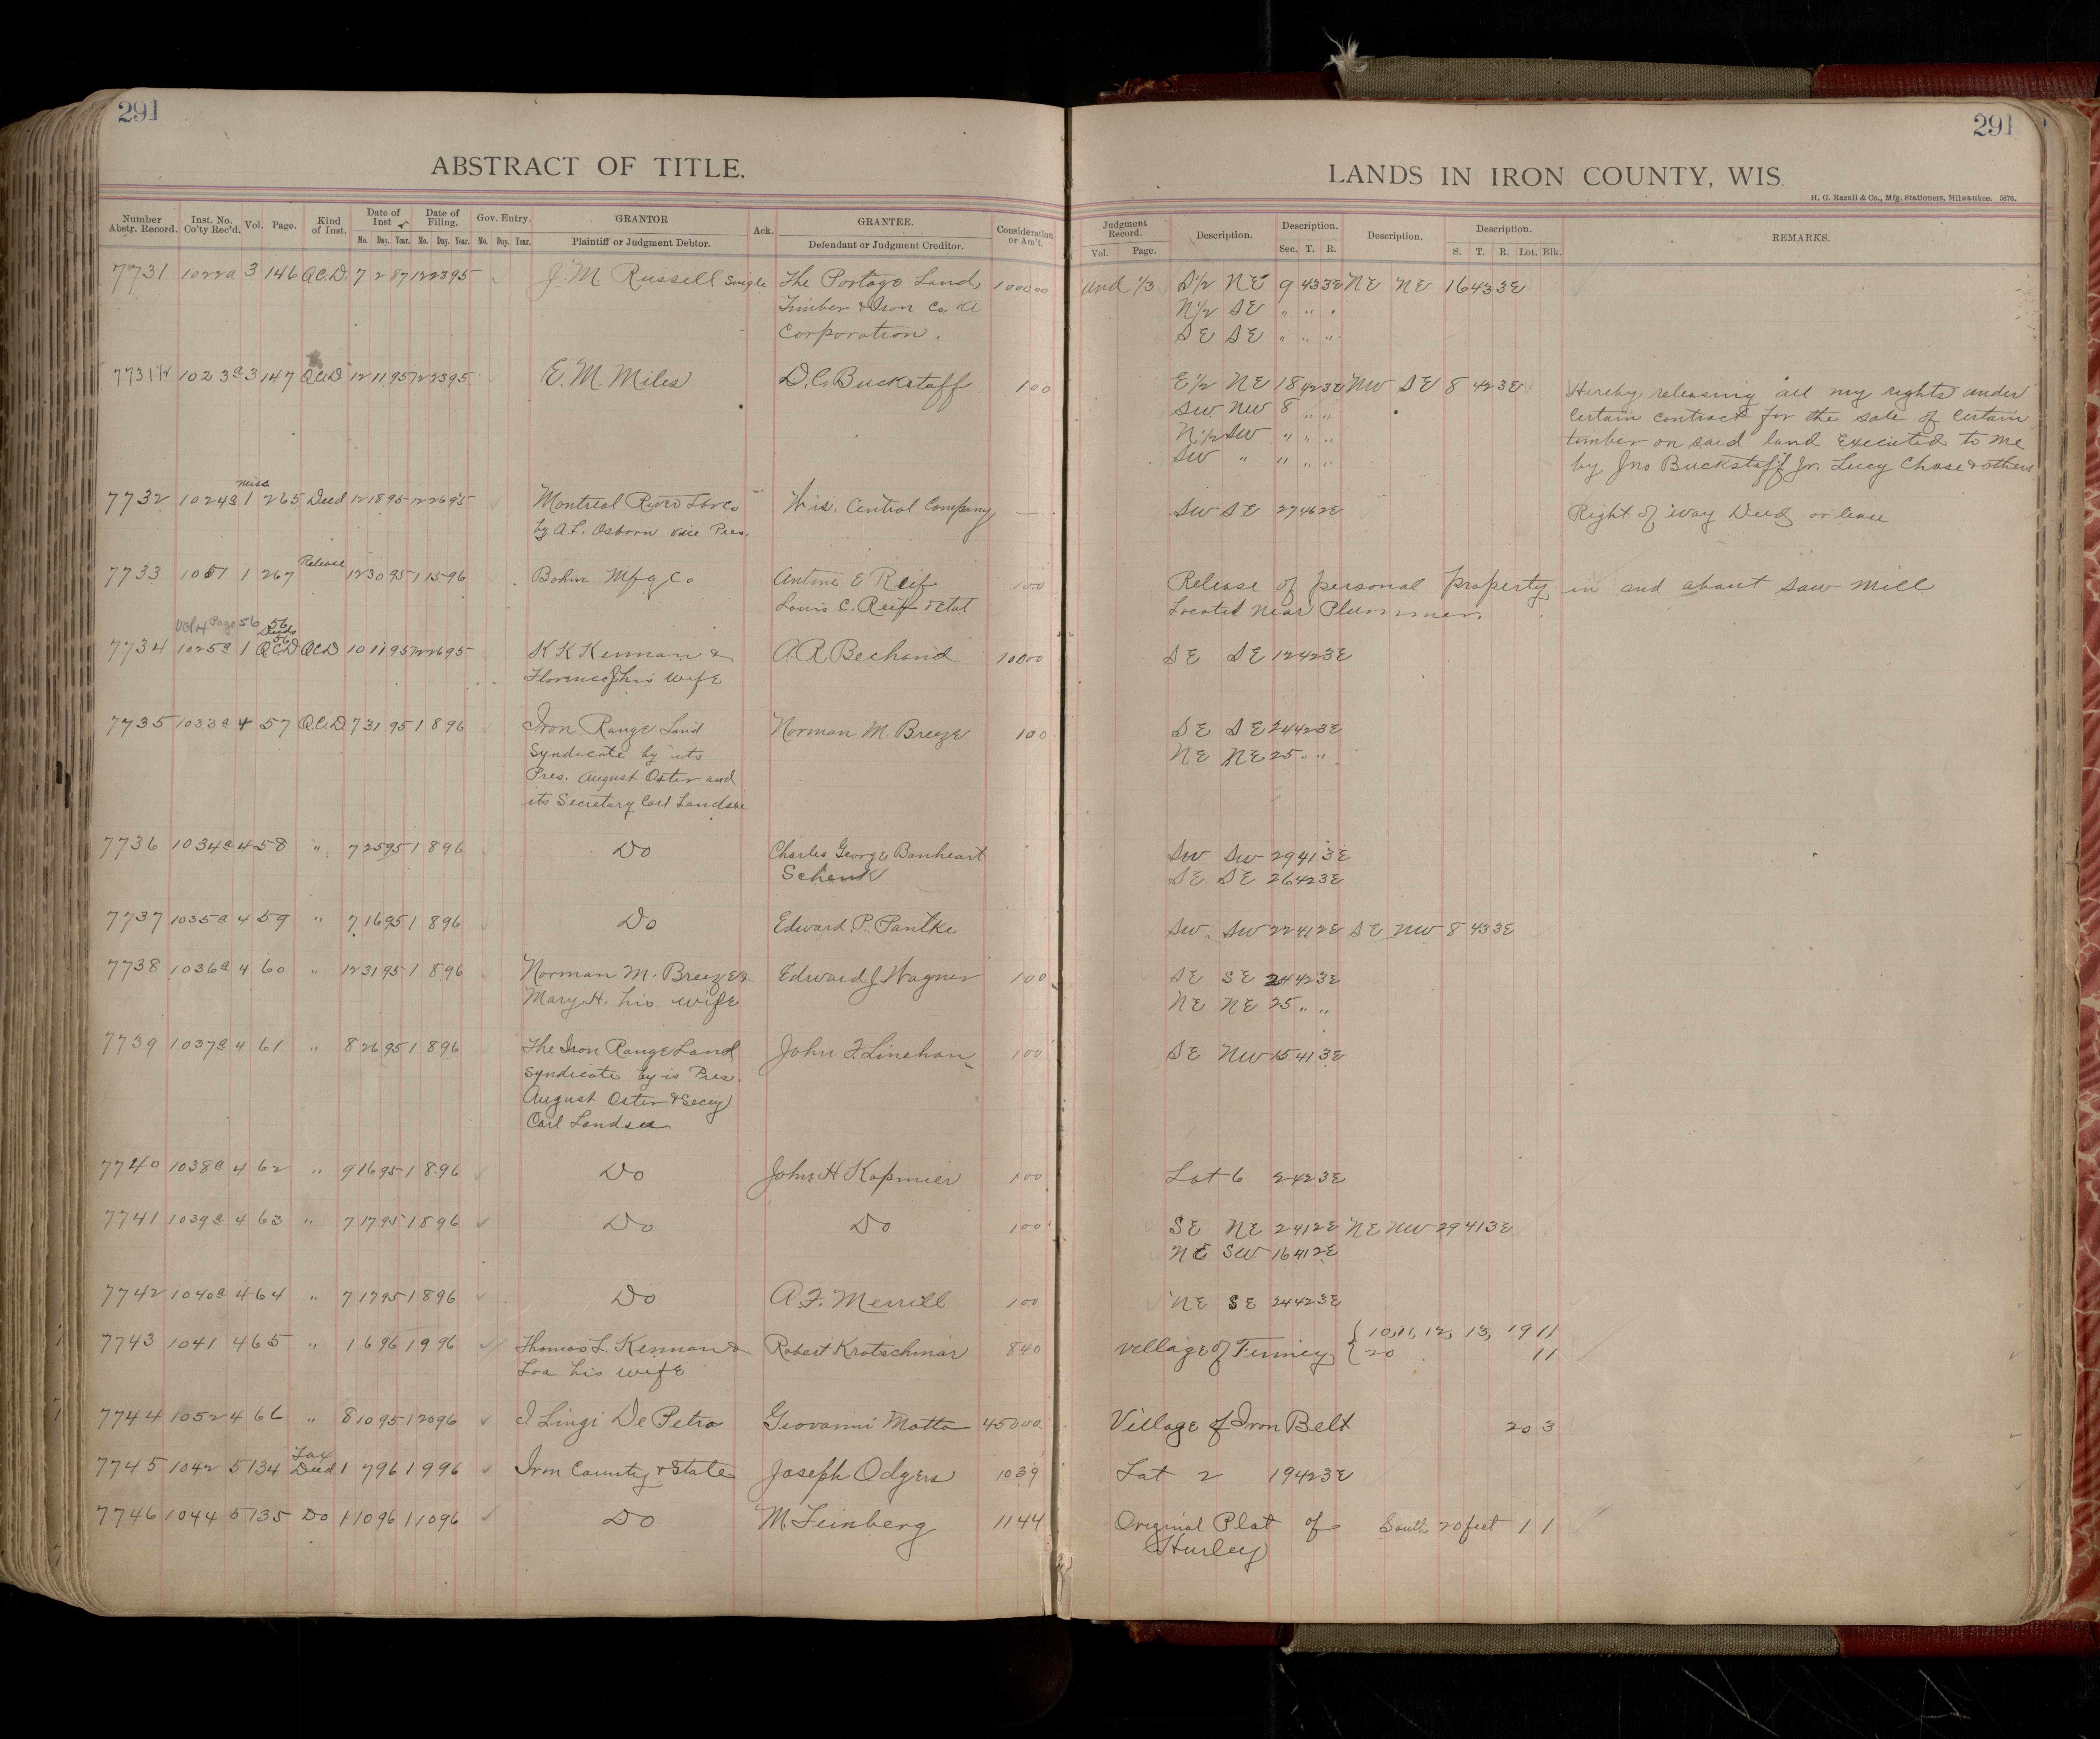 291
291
ABSTRACT OF TITLE.
LANDS IN IRON COUNTY, WIS.
H. G. Razall & Co., Mfg. Stationers, Milwaukee. 5676.
Number Abstr. Record. Inst. No. Co'ty Rec'd. Vol. Page. Kind of Inst. Date of Inst Mo. Day. Year. Date of Filing. Mo. Day. Year. Gov. Entry. Mo. Day. Year. GRANTOR Plaintiff or Judgment Debtor. Ack. GRANTEE. Defendant or Judgment Creditor. Consideration or Am't. Judgment Record. Vol. Page. Description. Description. Sec. T. R. Description. Description. S. T. R. Lot. Blk. REMARKS.
7731 1022a 3 146 Q.C.D. 7 2 87 12 23 95 J. M Russell Single The Portage Land, 1000 00 und 1/3 S1/2 NE 9 43 3E NE NE 16 43 3E
Timber & Iron Co. A N1/2 SE " " "
Corporation. SE SE " " "
7731 1/2 1023a 3 147 QCD 12 11 95 12 23 95 E. M. Miles D. C. Buckstaff 1 00 E1/2 NE 18 42 3E NW SE 8 42 3E Hereby releasing all my rights under
SW NW 8 " " Certain contract for the sale of Certain
N1/2 SW " " " timber on said land Executed to me
SW " " " " by Jno Buckstaff Jr. Lucy Chase & others
miss
7732 1024 1 265 Deed 12 18 95 12 26 95 Montreal River Lbr Co Wis. Central Company — SW SE 27 46 2E Right of way Deed or lease
by A. L. Osborn vice Pres.
7733 1051 1 267 Release 12 30 95 1 15 96 Bohn Mfg Co Antone E Reif 1 00 Release of personal property in and about Saw Mill
Louis C. Reif et al Located near Plummer.
Vol 4 Page 56 56
7734 1025a 1 QCD QCD 10 11 95 12 26 95 K K Kennan & A. R Bechand 100 00 SE SE 12 42 3E
Florence J his wife
7735 1033a 4 57 Q.C.D 7 31 95 1 8 96 Iron Range Land Norman M. Breeze 1 00 SE SE 24 42 3E
Syndicate by its NE NE 25 " "
Pres. August Oster and
its Secretary Carl Landsee
7736 1034a 4 58 " 7 25 95 1 8 96 Do Charles George Banheart SW SW 29 41 3E
Schenk SE SE 26 42 3E
7737 1035a 4 59 " 7 16 95 1 8 96 Do Edward P. Pantke SW SW 22 41 2E SE NW 8 43 3E
7738 1036a 4 60 " 12 31 95 1 8 96 Norman M. Breeze & Edward J Wagner 1 00 SE SE 24 42 3E
Mary H. his wife NE NE 25 " "
7739 1037a 4 61 " 8 26 95 1 8 96 The Iron Range Land John F Linehan 1 00 SE NW 15 41 3E
Syndicate by is Pres.
August Oster & Secy
Carl Landsee
7740 1038a 4 62 " 9 16 95 1 8 96 Do John H Kopmier 1 00 Lot 6 2 42 3E
7741 1039a 4 63 " 7 17 95 1 8 96 Do Do 1 00 SE NE 24 1 2E NE NW 29 41 3E
NE SW 16 41 2E
7742 1040a 4 64 " 7 17 95 1 8 96 Do A. F. Merrill 1 00 NE SE 24 42 3E
7743 1041 4 65 " 1 6 96 1 9 96 Thomas L. Kennan & Robert Krotschmar 8 40 village of Tinney 10, 11, 12, 13, 19 11
Loa his wife 20 11
7744 1052 4 66 " 8 10 95 1 20 96 Lingi De Petro Giovanni Motto 450 00 Village of Iron Belt 20 3
7745 1042 5 134 Tax Deed 1 7 96 1 9 96 Iron County & State Joseph Odgers 10 39 Lot 2 19 42 3E
7746 1044 5 135 Do 1 10 96 1 10 96 Do M Feinberg 11 44 Original Plat of South 20 feet 1 1
Hurley